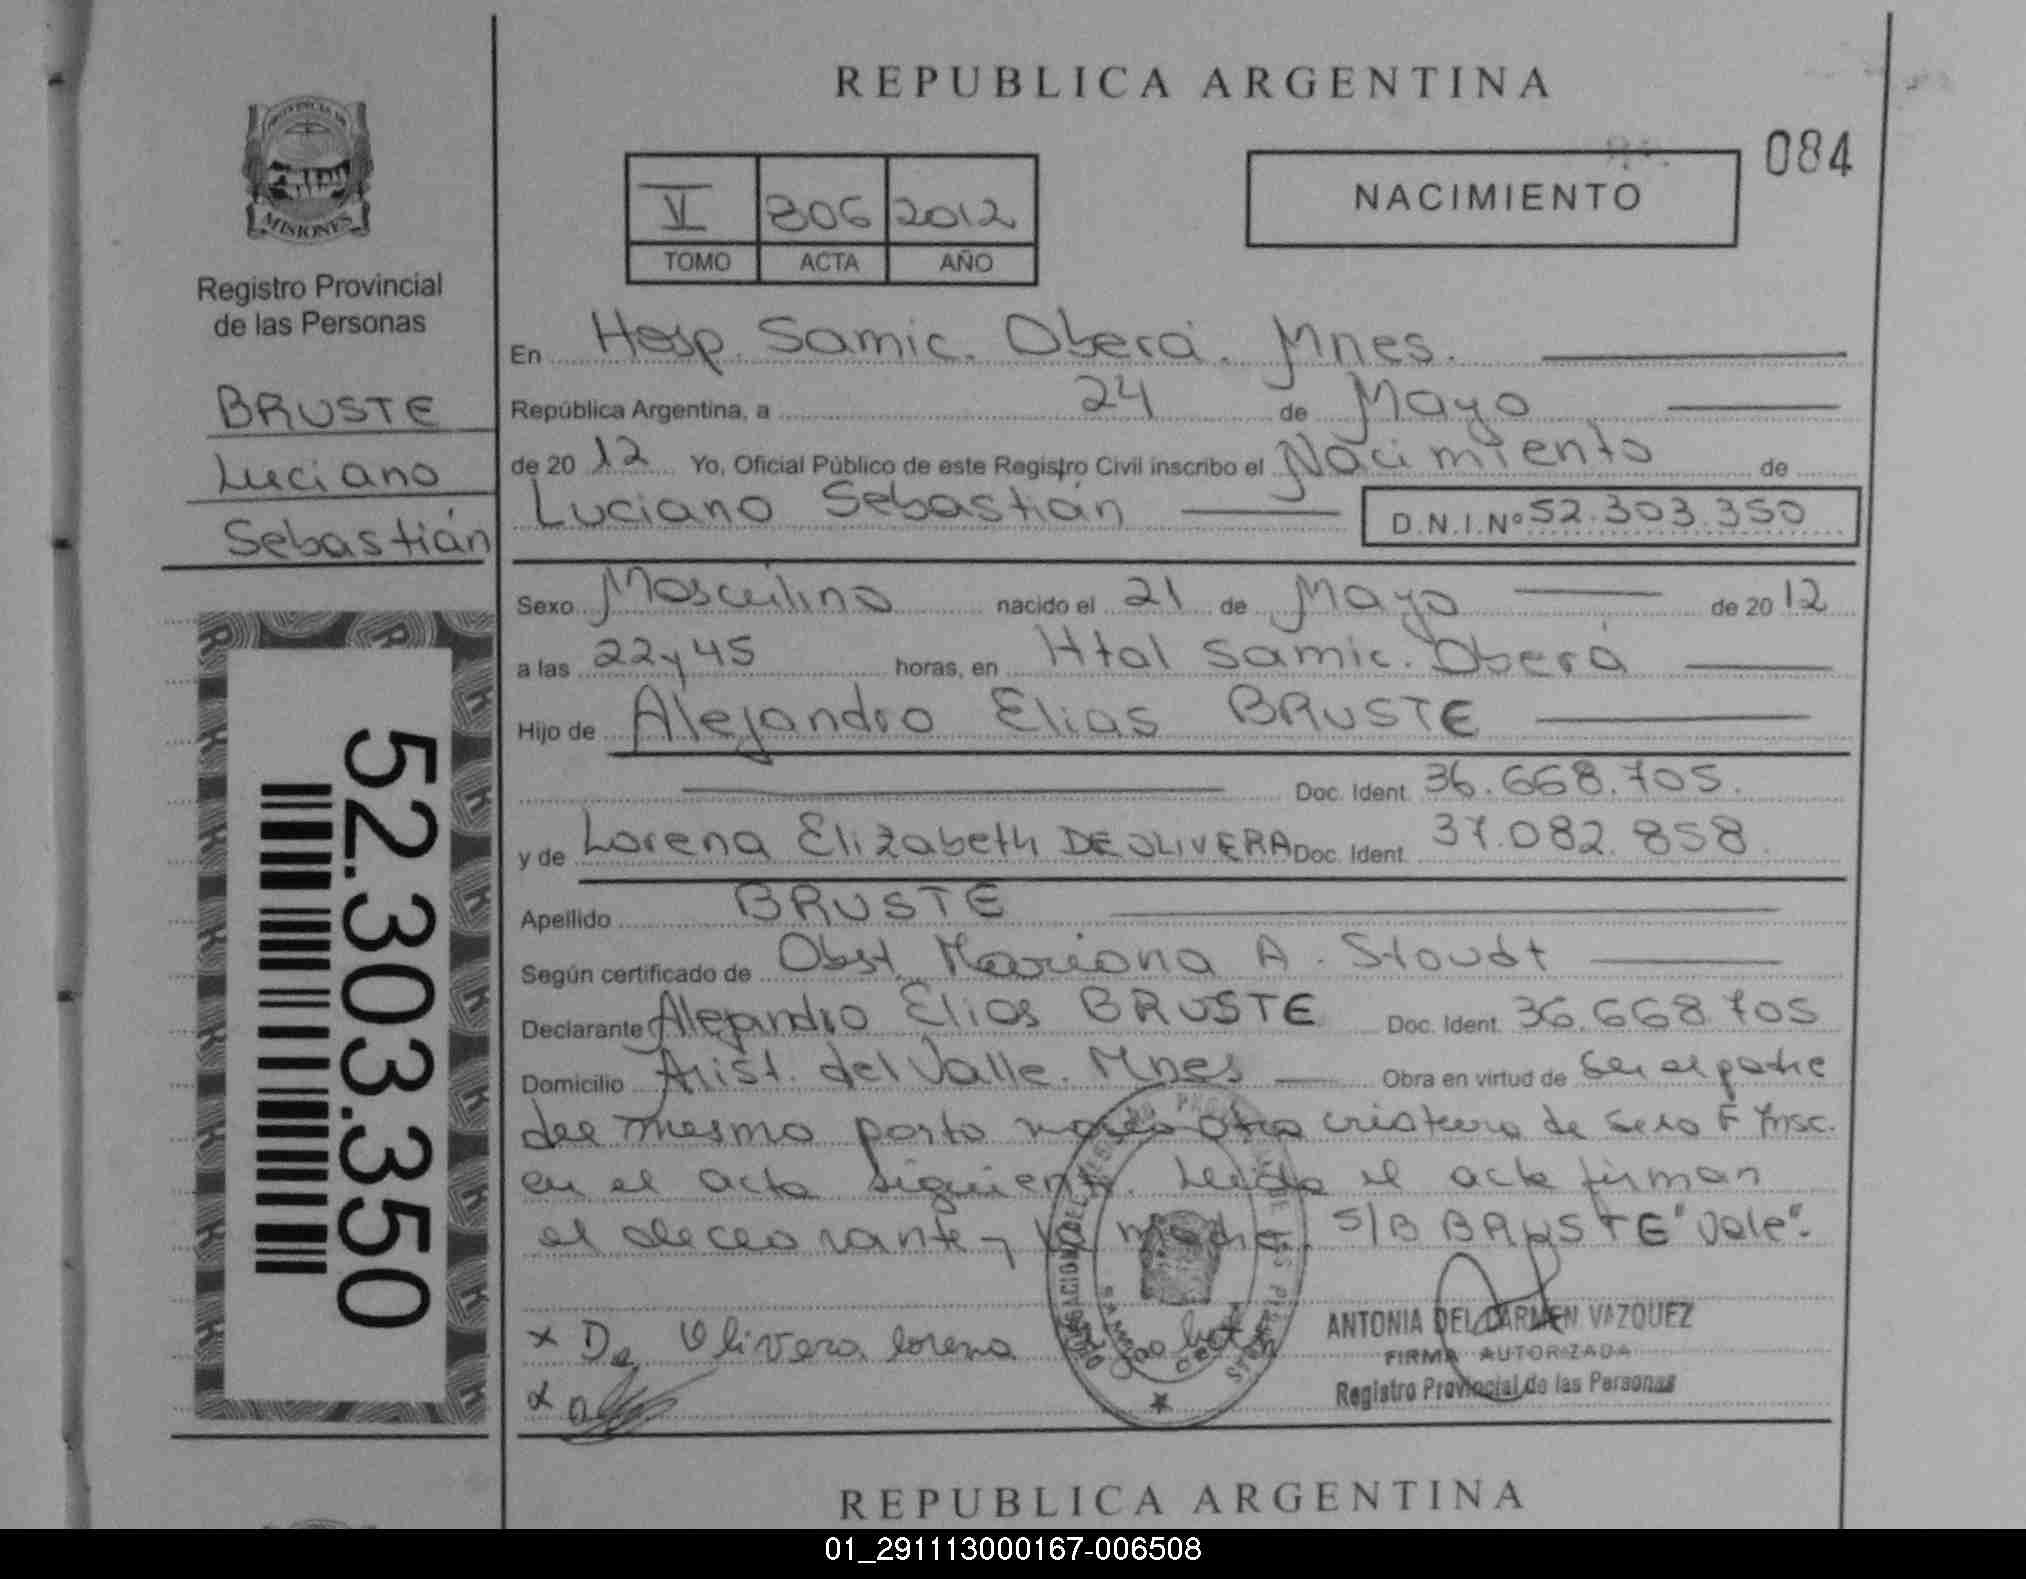 REPUBLICA ARGENTINA
084
NACIMIENTO
V 806 2012
TOMO ACTA AÑO
MISIONES
Registro Provincial
de las Personas
BRUSTE
Luciano
Sebastián
52.303.350
En Hosp. Samic. Oberá. Mnes.
República Argentina, a 24 de Mayo
de 20 12 Yo, Oficial Público de este Registro Civil inscribo el Nacimiento de
Luciano Sebastián D.N.I.Nº 52.303.350
Sexo Masculino nacido el 21 de Mayo de 20 12
a las 22 y 45 horas, en Htal Samic. Oberá
Hijo de Alejandro Elias BRUSTE
Doc. Ident. 36.668.705.
y de Lorena Elizabeth DE OLIVERA Doc. Ident. 37.082.858
Apellido BRUSTE
Según certificado de Obst. Mariana A. Stoudt
Declarante Alejandro Elias BRUSTE Doc. Ident. 36.668.705
Domicilio Arist. del Valle. Mnes Obra en virtud de ser el padre
del mismo parto nació otra criatura de sexo F Insc.
en el acta siguiente. Leída el acta firman
el declarante y la madre. S/B BRUSTE "Vale".
x De Olivera lorena
x
ANTONIA DEL CARMEN VAZQUEZ
FIRMA AUTORIZADA
Registro Provincial de las Personas
REPUBLICA ARGENTINA
01_291113000167-006508